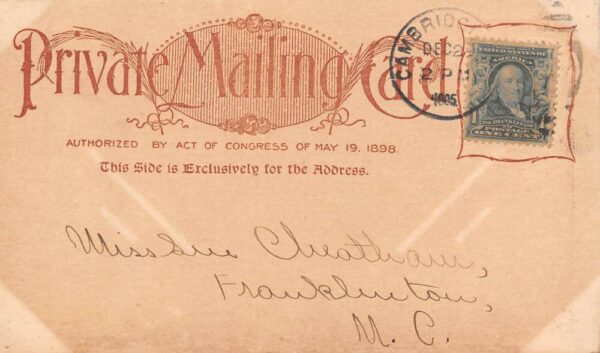 Private Mailing Card
AUTHORIZED BY ACT OF CONGRESS OF MAY 19. 1898.
This Side is Exclusively for the Address.
CAMBRIDG
DEC 2
2 P M
1905
UNITED STATES OF
AMERICA
FRANKLIN
POSTAGE
ONE CENT
Miss Sue Cheatham,
Franklinton,
N. C.